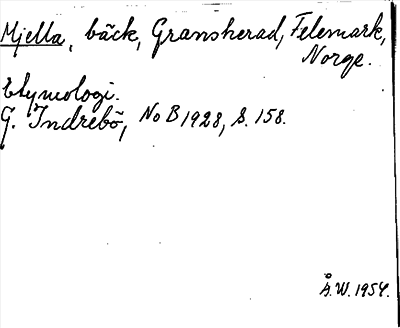 Mjella, bäck, Gransherad, Telemark,
Norge.
Etymologi.
G. Indrebö, NoB 1928, s. 158.
Å.W. 1954.